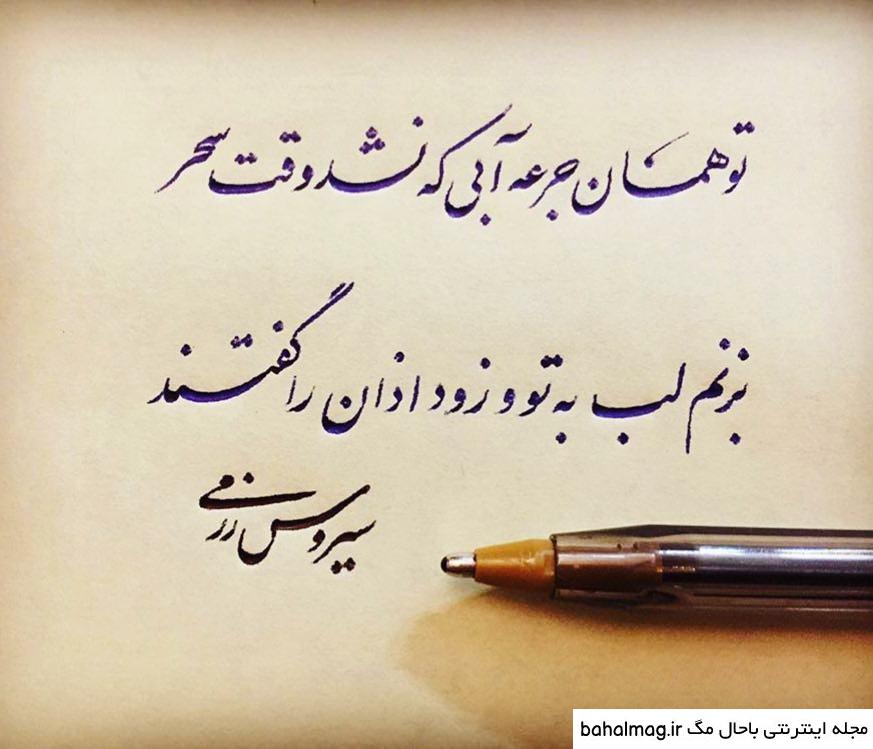 تو همان جرعه آبی که نشد وقت سحر
بزنم لب به تو و زود اذان را گفتند
سیروس رزمی
مجله اینترنتی باحال مگ bahalmag.ir